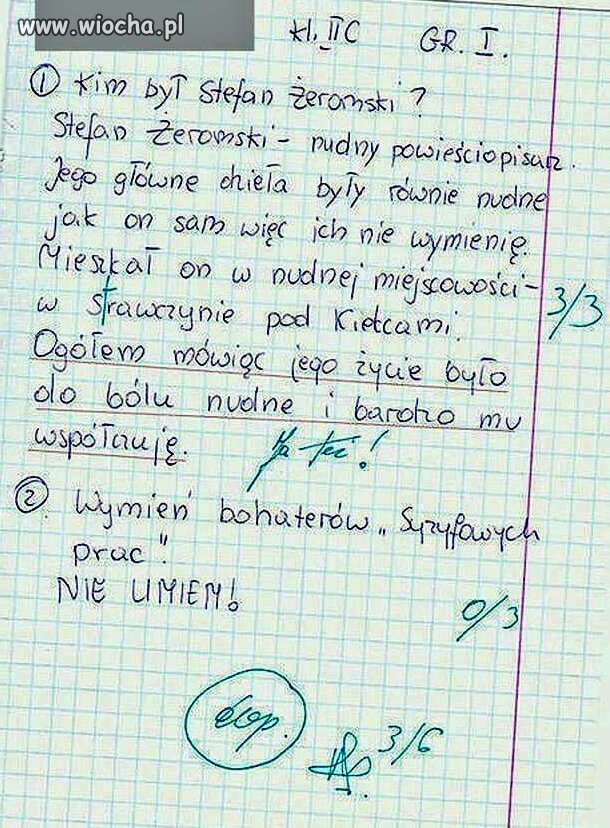 www.wiocha.pl
kl. II C GR. I.
① Kim był Stefan Żeromski?
Stefan Żeromski - nudny powieściopisarz.
Jego główne dzieła były równie nudne
jak on sam więc ich nie wymienię.
Mieszkał on w nudnej miejscowości -
w Strawczynie pod Kielcami.
3/3
Ogółem mówiąc jego życie było
do bólu nudne i bardzo mu
współczuję. Ja też!
② Wymień bohaterów „Syzyfowych
prac".
NIE UMIEM!
0/3
dop.
3/6